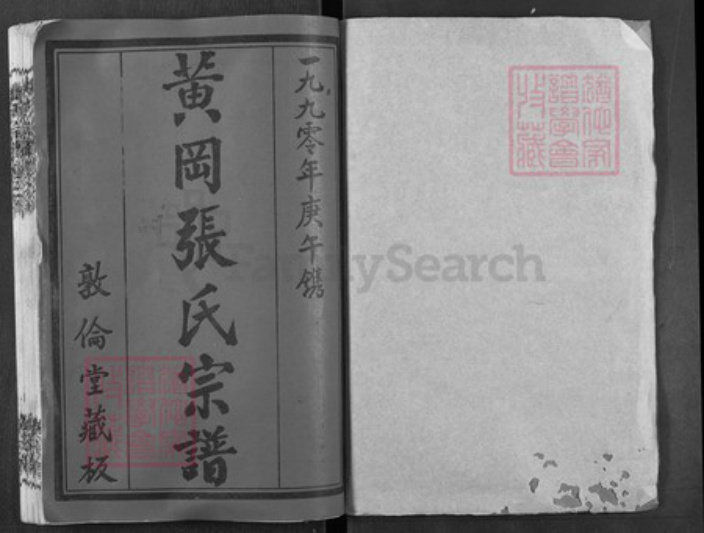 一九九零年庚午鐫
黃岡張氏宗譜
敦倫堂藏板
FamilySearch
譜學會
收藏